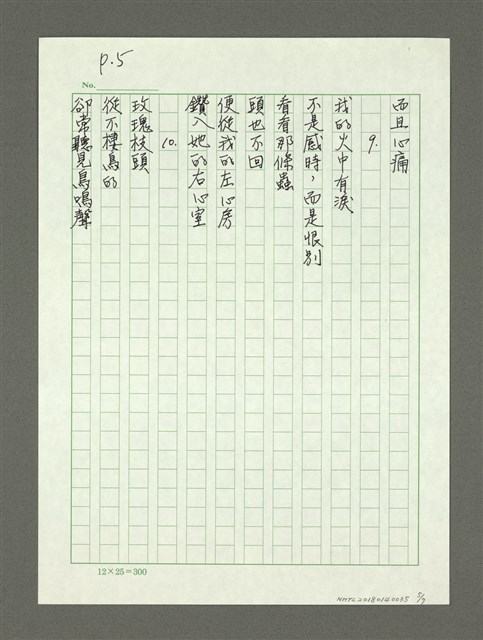 p.5
No.
而且心痛
9.
我的火中有淚
不是感時，而是恨別
看看那條蟲
頭也不回
便從我的左心房
鑽入她的右心室
10.
玫瑰枝頭
從不棲鳥的
卻常聽見鳥鳴聲
12×25=300
NMTL20180140035 5/7